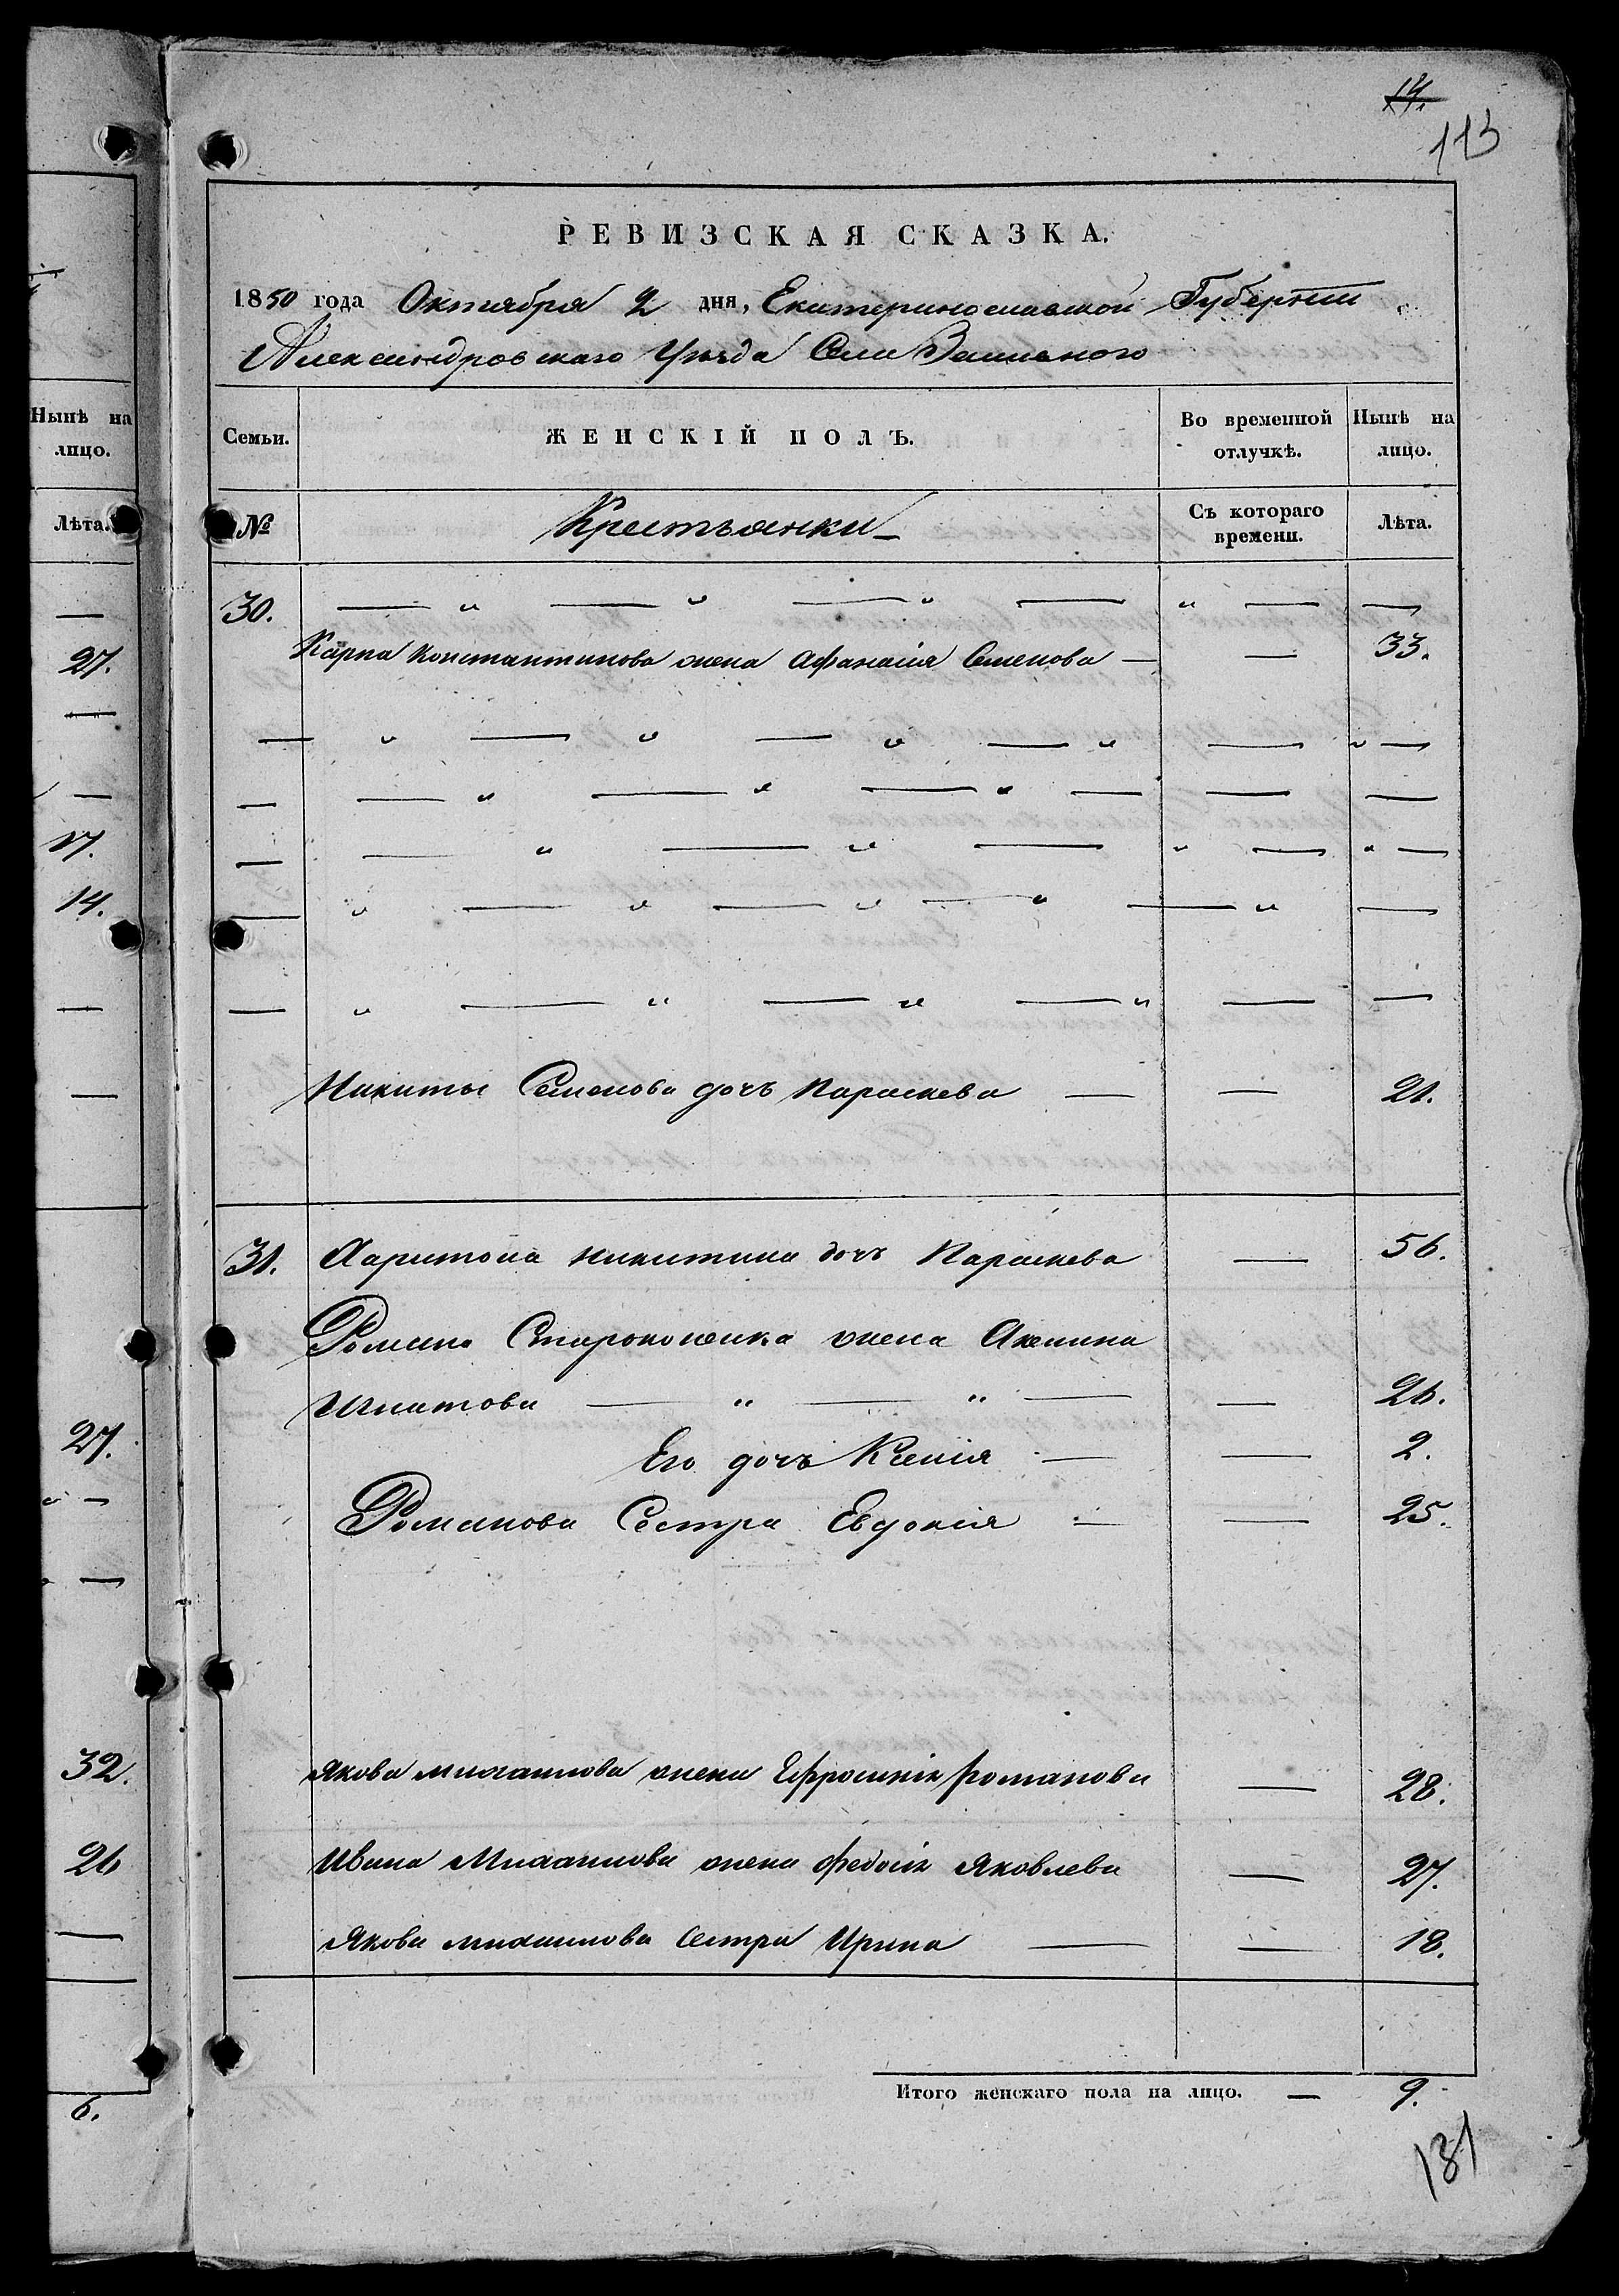 14.
113
РЕВИЗСКАЯ СКАЗКА.
1850 года Октября 2 дня, Екатеринославской Губернии
Александровскаго Уѣзда Села
Семьи. ЖЕНСКІЙ ПОЛЪ. Во временной отлучкѣ. Нынѣ на лицо.
№ Крестьянки Съ котораго времени. Лѣта.
30. — " — " — " — " — —
Карпа Константинова жена Афанасія Семенова — — 33.
— " — " — " — " — " —
— — " — " — " — — —
— — " — " — " — " —
— " — " — " — " — " —
— " — " — " — " — —
Никиты Семенова дочь Параскева — — 21.
31. Харитона Никитина дочь Параскева — 56.
Романа Старокожика жена Акилина
Игнатова — " — " — — 26.
Его дочь Ксенія — — 2.
Романова Сестра Евдокія — — 25.
Якова Михаилова жена Ефросинія Романова — 28.
Ивана Михаилова жена Федосія Яковлева — 27.
Якова Михаилова сестра Ирина — — 18.
Итого женскаго пола на лицо. — 9.
131
Нынѣ на
лицо.
Лѣта.
—
27.
—
—
17.
14.
—
—
27.
" —
—
32.
26
—
6.